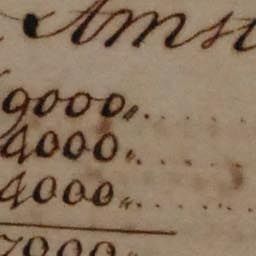 Amst
9000,,......
4000,,.....
4000,,......
7000,,